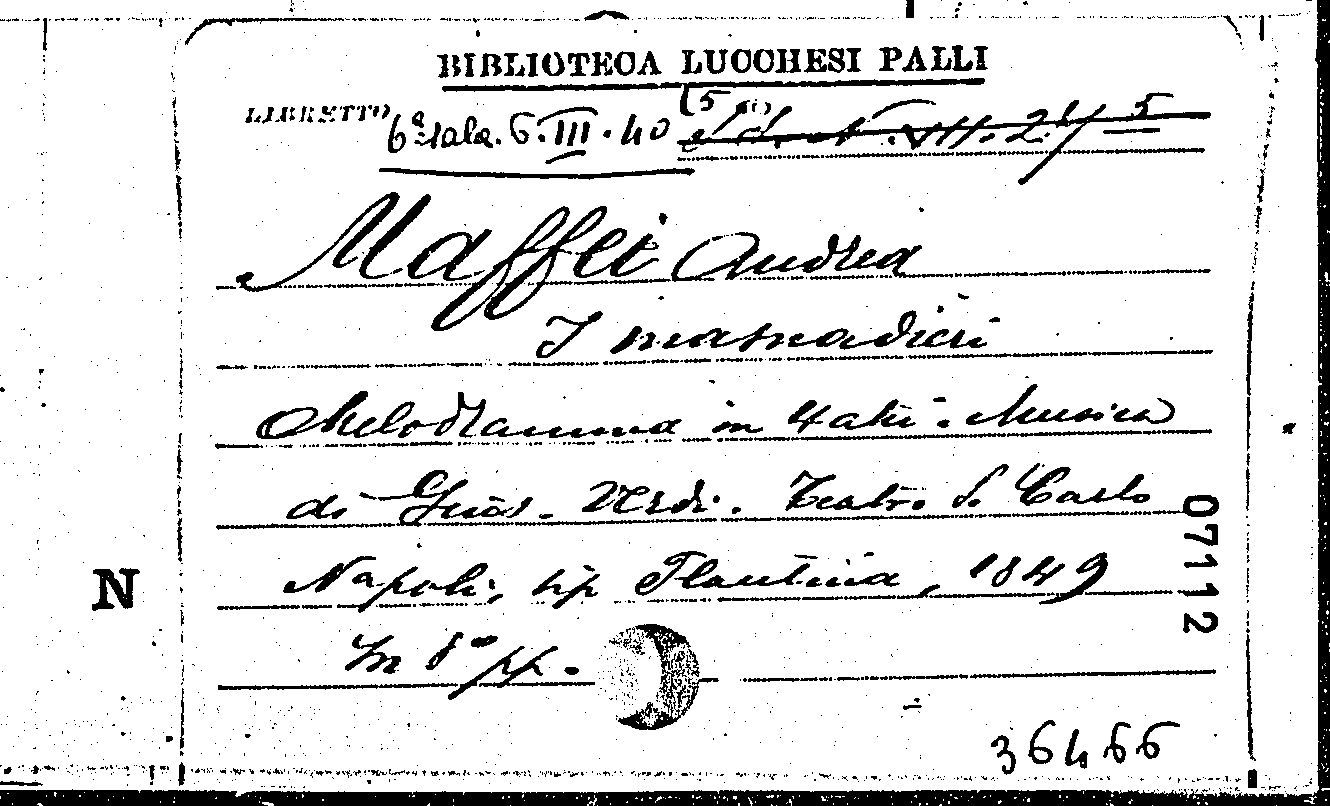 BIBLIOTECA LUCCHESI PALLI
LIBRETTO
6ª sala. 6. III. 40 (5
Maffei Andrea
I masnadieri
Melodramma in 4 atti. Musica
di Gius. Verdi. Teatro S. Carlo
Napoli, tip Flautina, 1849
In 8° pp.
N
07112
36466